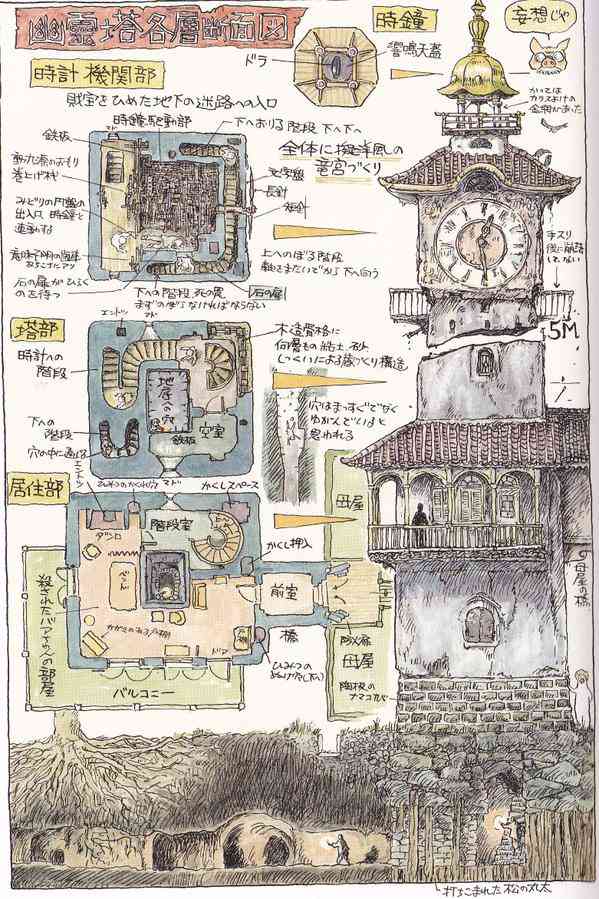 幽霊塔各層断面図
時鐘
妄想じゃ
ドラ
響鳴天蓋
時計機関部
財宝をひめた地下の迷路への入口
かつては
カラスよけの
金網があった
時鐘駆動部
マド
下へおりる階段 下へ下へ
全体に擬洋風の
竜宮づくり
鉄板
動力源のおもり
巻上げ機
文字盤
長針
短針
みどりの円盤の
出入口 時鐘と
連動する
手スリ
後に崩落
してない
上へのぼる階段
軸をまたいでから下へ向う
石の扉がひらく
のを待つ
下への階段、死の罠
まずのぼらなければならない
石の扉
5M
塔部
エントツ
マド
時計への
階段
木造骨格に
何層もの粘土、砂
しっくいによるお蔵づくり構造
地底への穴
空室
鉄板
下への
階段
穴の中に通じる
穴はまっすぐでなく
ゆがんでいると
思われる
居住部
エントツ
ひみつのかくれ穴
マド
かくしスペース
母屋
階段室
ダンロ
かくし押入
前室
殺されたバアサンの部屋
ドア
橋
ひみつの
バルコニー
母屋
陶板の
ナマコカベ
母屋の橋
打ちこまれた松の丸太